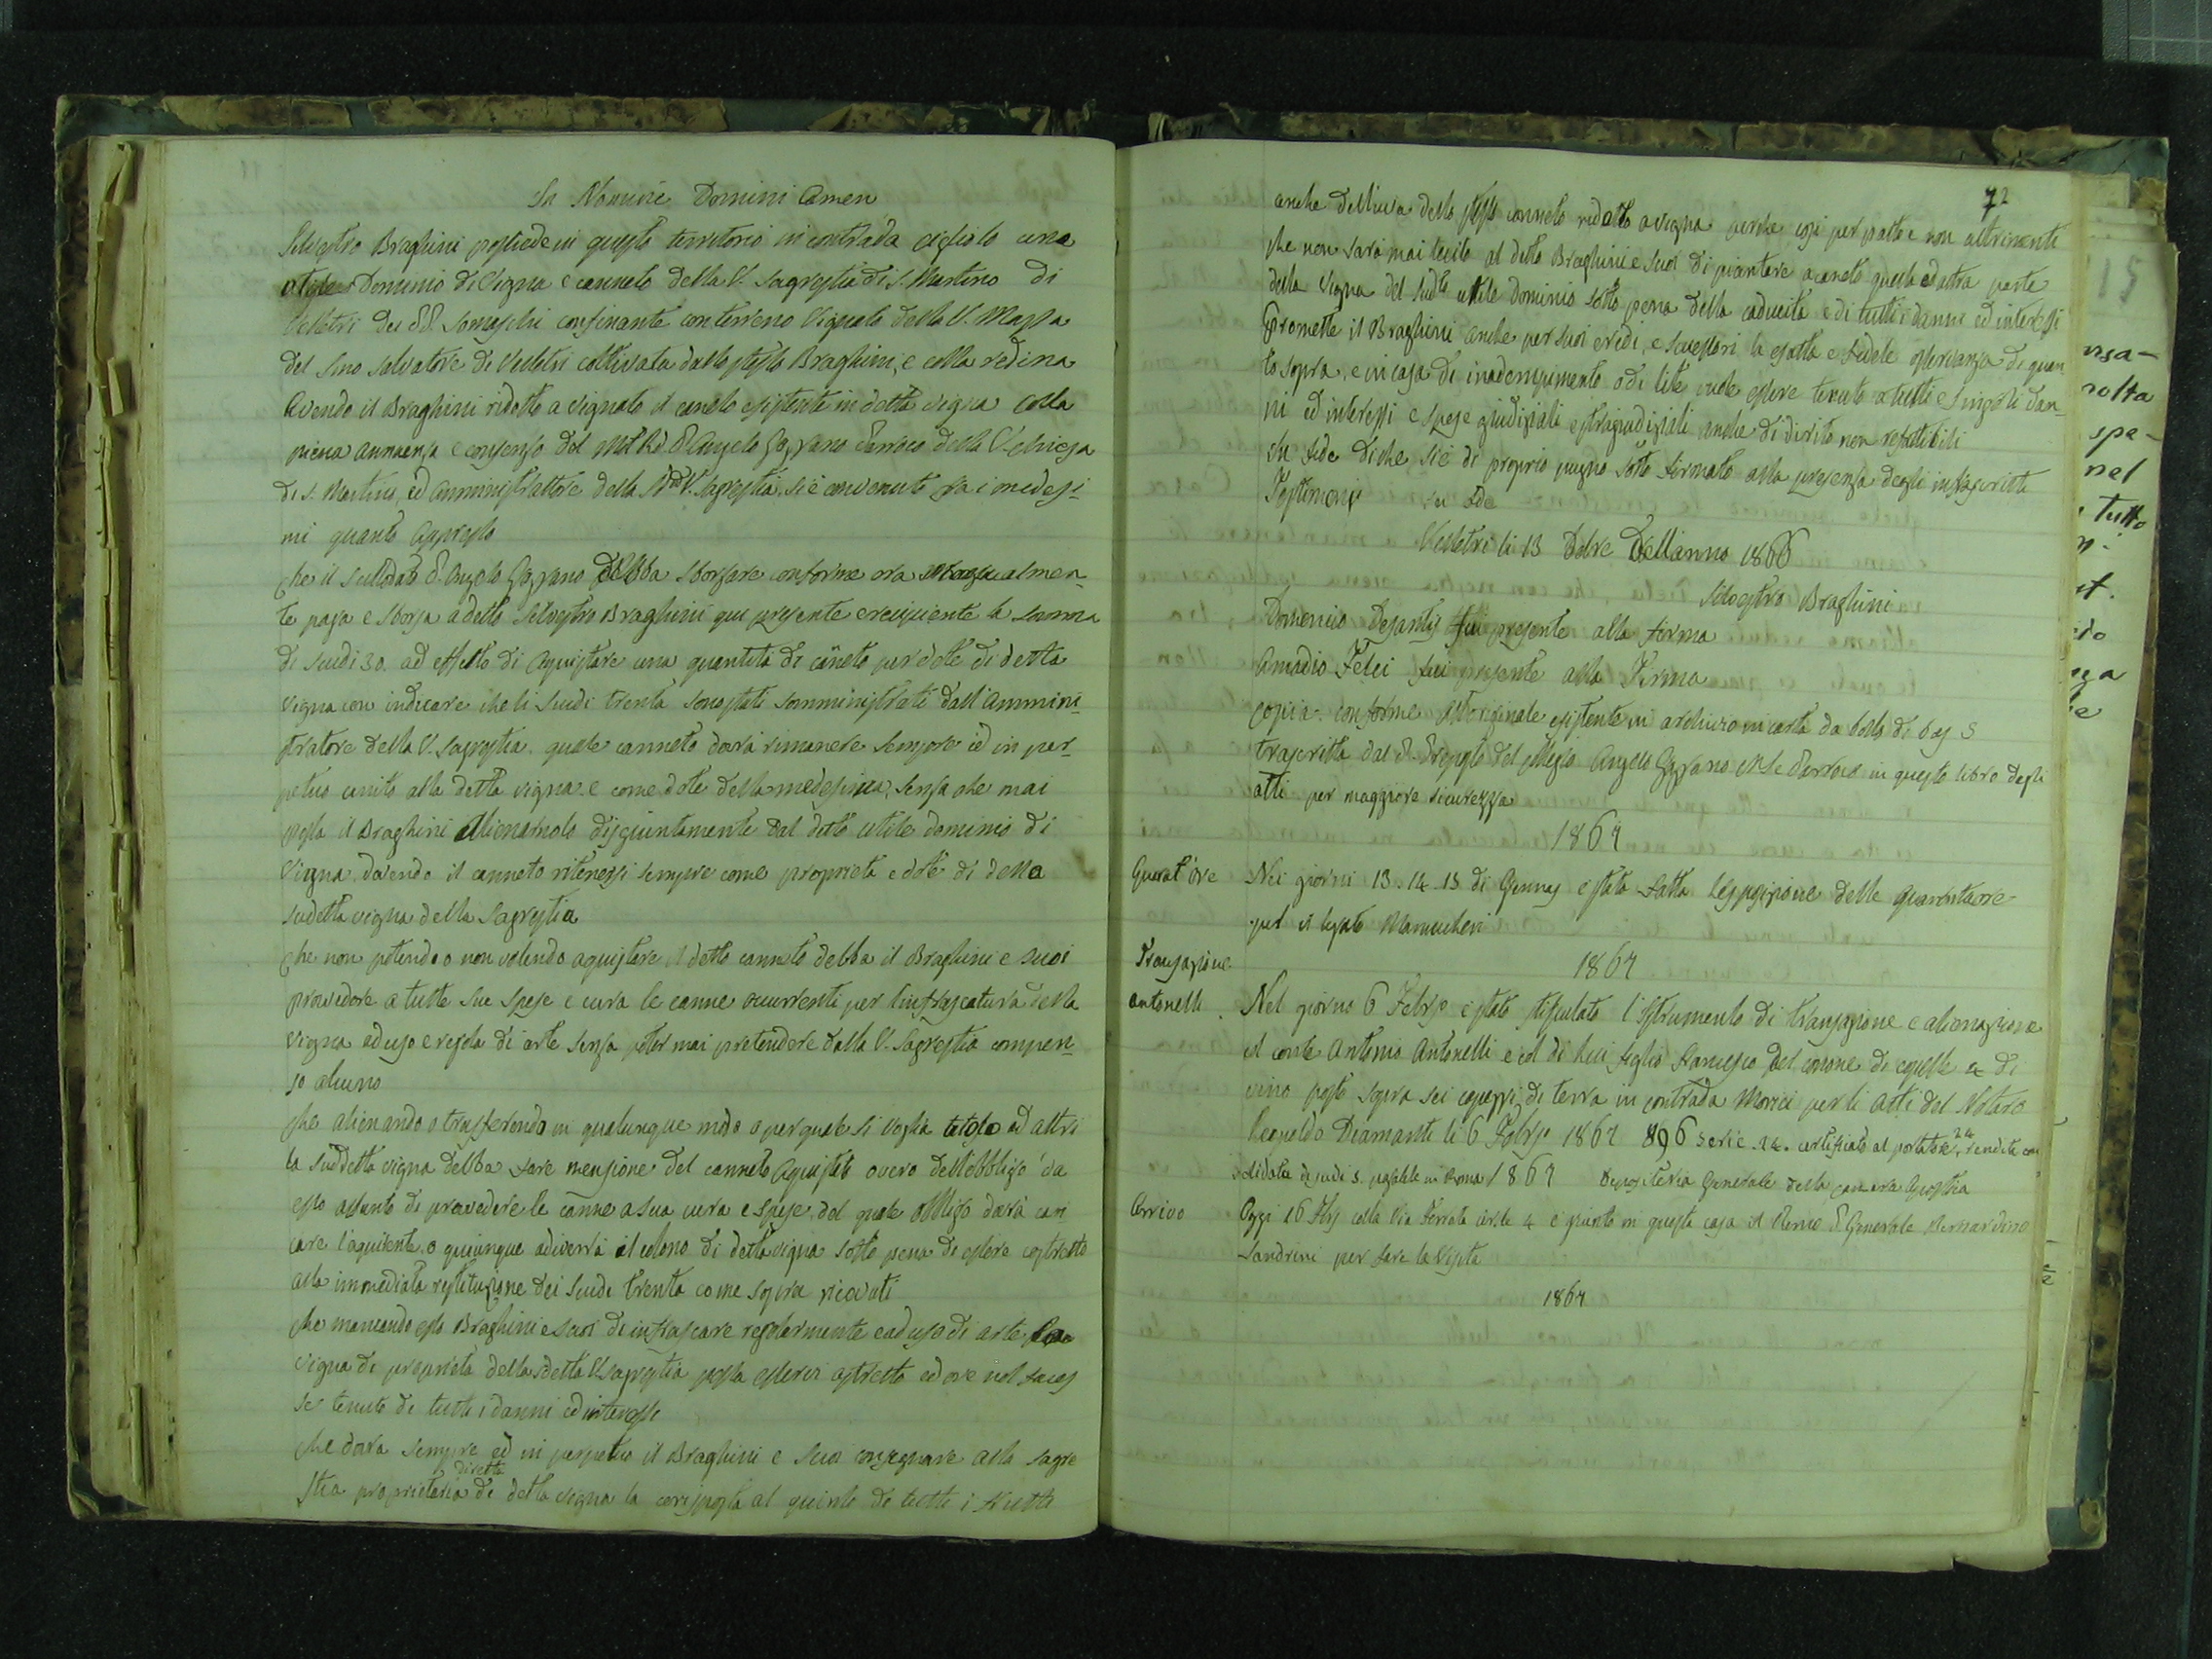 In Nomine Domini Amen
Silvestro Braghini possiede in questo territorio in contrada Cigliolo una
utile Dominio di Vigna e canneto della V. Sagrestia di S. Martino di
Velletri dei PP. Somaschi confinante con terreno Vignato della V. Mensa
del Smo Salvatore di Velletri coltivata dallo stesso Braghini, e colla redina
Avendo il Braghini ridotto a vignato il canneto esistente in detta vigna colla
piena annuenza e consenso del Mto Rdo P. Angelo Gazzano Parroco della V. chiesa
di S. Martino, ed amministrattore della V. Sagrestia, si è convenuto fra i medesi-
mi quanto appresso
che il P. Angelo Gazzano debba sborsare conforme ora almen-
te paga e sborsa a detto Silvestro Braghini qui presente e recipiente la somma
di scudi 30. ad effetto di aquistare una quantità di canneto per dote di detta
vigna con indicare che li scudi trenta sono stati somministrati dall'Ammini-
stratore della V. Sagrestia. quale canneto dovrà rimanere sempre ed in per-
petuo unito alla detta vigna e come dote della medesima, senza che mai
possa il Braghini alienarnolo disgiuntamente dal detto utile dominio di
Vigna, dovendo il canneto ritenersi sempre come proprietà e dote di detta
sudetta vigna della Sagrestia
che non potendo o non volendo aquistare il detto canneto debba il Braghini e suoi
provvedere a tutte sue spese e cura le canne occorrenti per l'infrascatura della
vigna ad uso e regola di arte senza poter mai pretendere dalla V. Sagrestia compen-
so alcuno
che alienando o trasferendo in qualunque modo o per quale si voglia titolo ad altri
la suddetta vigna debba fare menzione del canneto aquistato overo dell'obbligo da
esso assunto di provvedere le canne a sua cura e spese, del quale obbligo dovrà cari-
care l'aquirente, o quiunque adiverrà il colono di detta vigna sotto pena di essere costretto
alla immediata restituzione dei scudi trenta come sopra ricevuti
che mancando esso Braghini e suoi di infrascare regolarmente e ad uso di arte la
vigna di proprietà della detta V. Sagrestia possa esservi astretto ed ove nol faces
se tenuto di tutti i danni ed interesse
che dovra sempre ed in perpetuo il Braghini e suoi consegnare alla sagre
stia proprietaria diretta di detta vigna la corisposta al quinto di tutti i frutti
72
anche dell'uva dello stesso canneto ridotto a vigna perche cosi per patto e non altrimenti
che non sarà mai lecito al detto Braghini e suoi di piantare a caneto questa ed altra parte
della vigna del sudto utile Dominio sotto pena della caducità e di tutti i danni ed interessi
Promette il Braghini anche per suoi eredi, e successori la esatta e fedele osservanza di quan
to sopra, e in caso di inadempimento o di lite vuole essere tenuto a tutti e singoli dan-
ni ed interessi e spese giudiziali estragiudiziali anche di dirito non refettibili
In fede di che si è di proprio pugno sotto firmato alla presenza degli infrascritti
Testimonj in fede
Velletri li 13 Dellanno 1866
Silvestro Braghini
Domenico Desantis fui presente alla firma
Amadio Felci fui presente alla Firma
copia conforme all'originale esistente in archivio in carta da bollo di baj 5
trascritta dal P. Preposto del Angelo Gazzano Parroco in questo libro degli
atti per maggiore sicurezza
1867
Quarat'ore Nei giorni 13. 14. 15 di Gennaj è stata fatta l'esposizione delle Quarantaore
pel il legato
Transazione 1867
Antonelli. Nel giorno 6 Febrjo è stato stipulato l'Istrumento di transazione e alienazione
il conte Antonio Antonelli e col di lui figlio Francesco del canone di di
vino posto sopra sei di terra in contrada Morici per li atti del Notaro
Leopoldo Diamanti li 6 Febrjo 1867 896 serie. 24. certificato al portatore 24 rendita con
solidata di scudi 5. pagabile in Roma 1867 Depositeria Generale della camera Apostlia
Arrivo Oggi 16 colla Via ferrata 4 è giunto in questa casa il Revmo P. Generale Bernardino
Sandrini per fare la Visita
1867
15
nsa-
nolta
spe-
nel
tutto